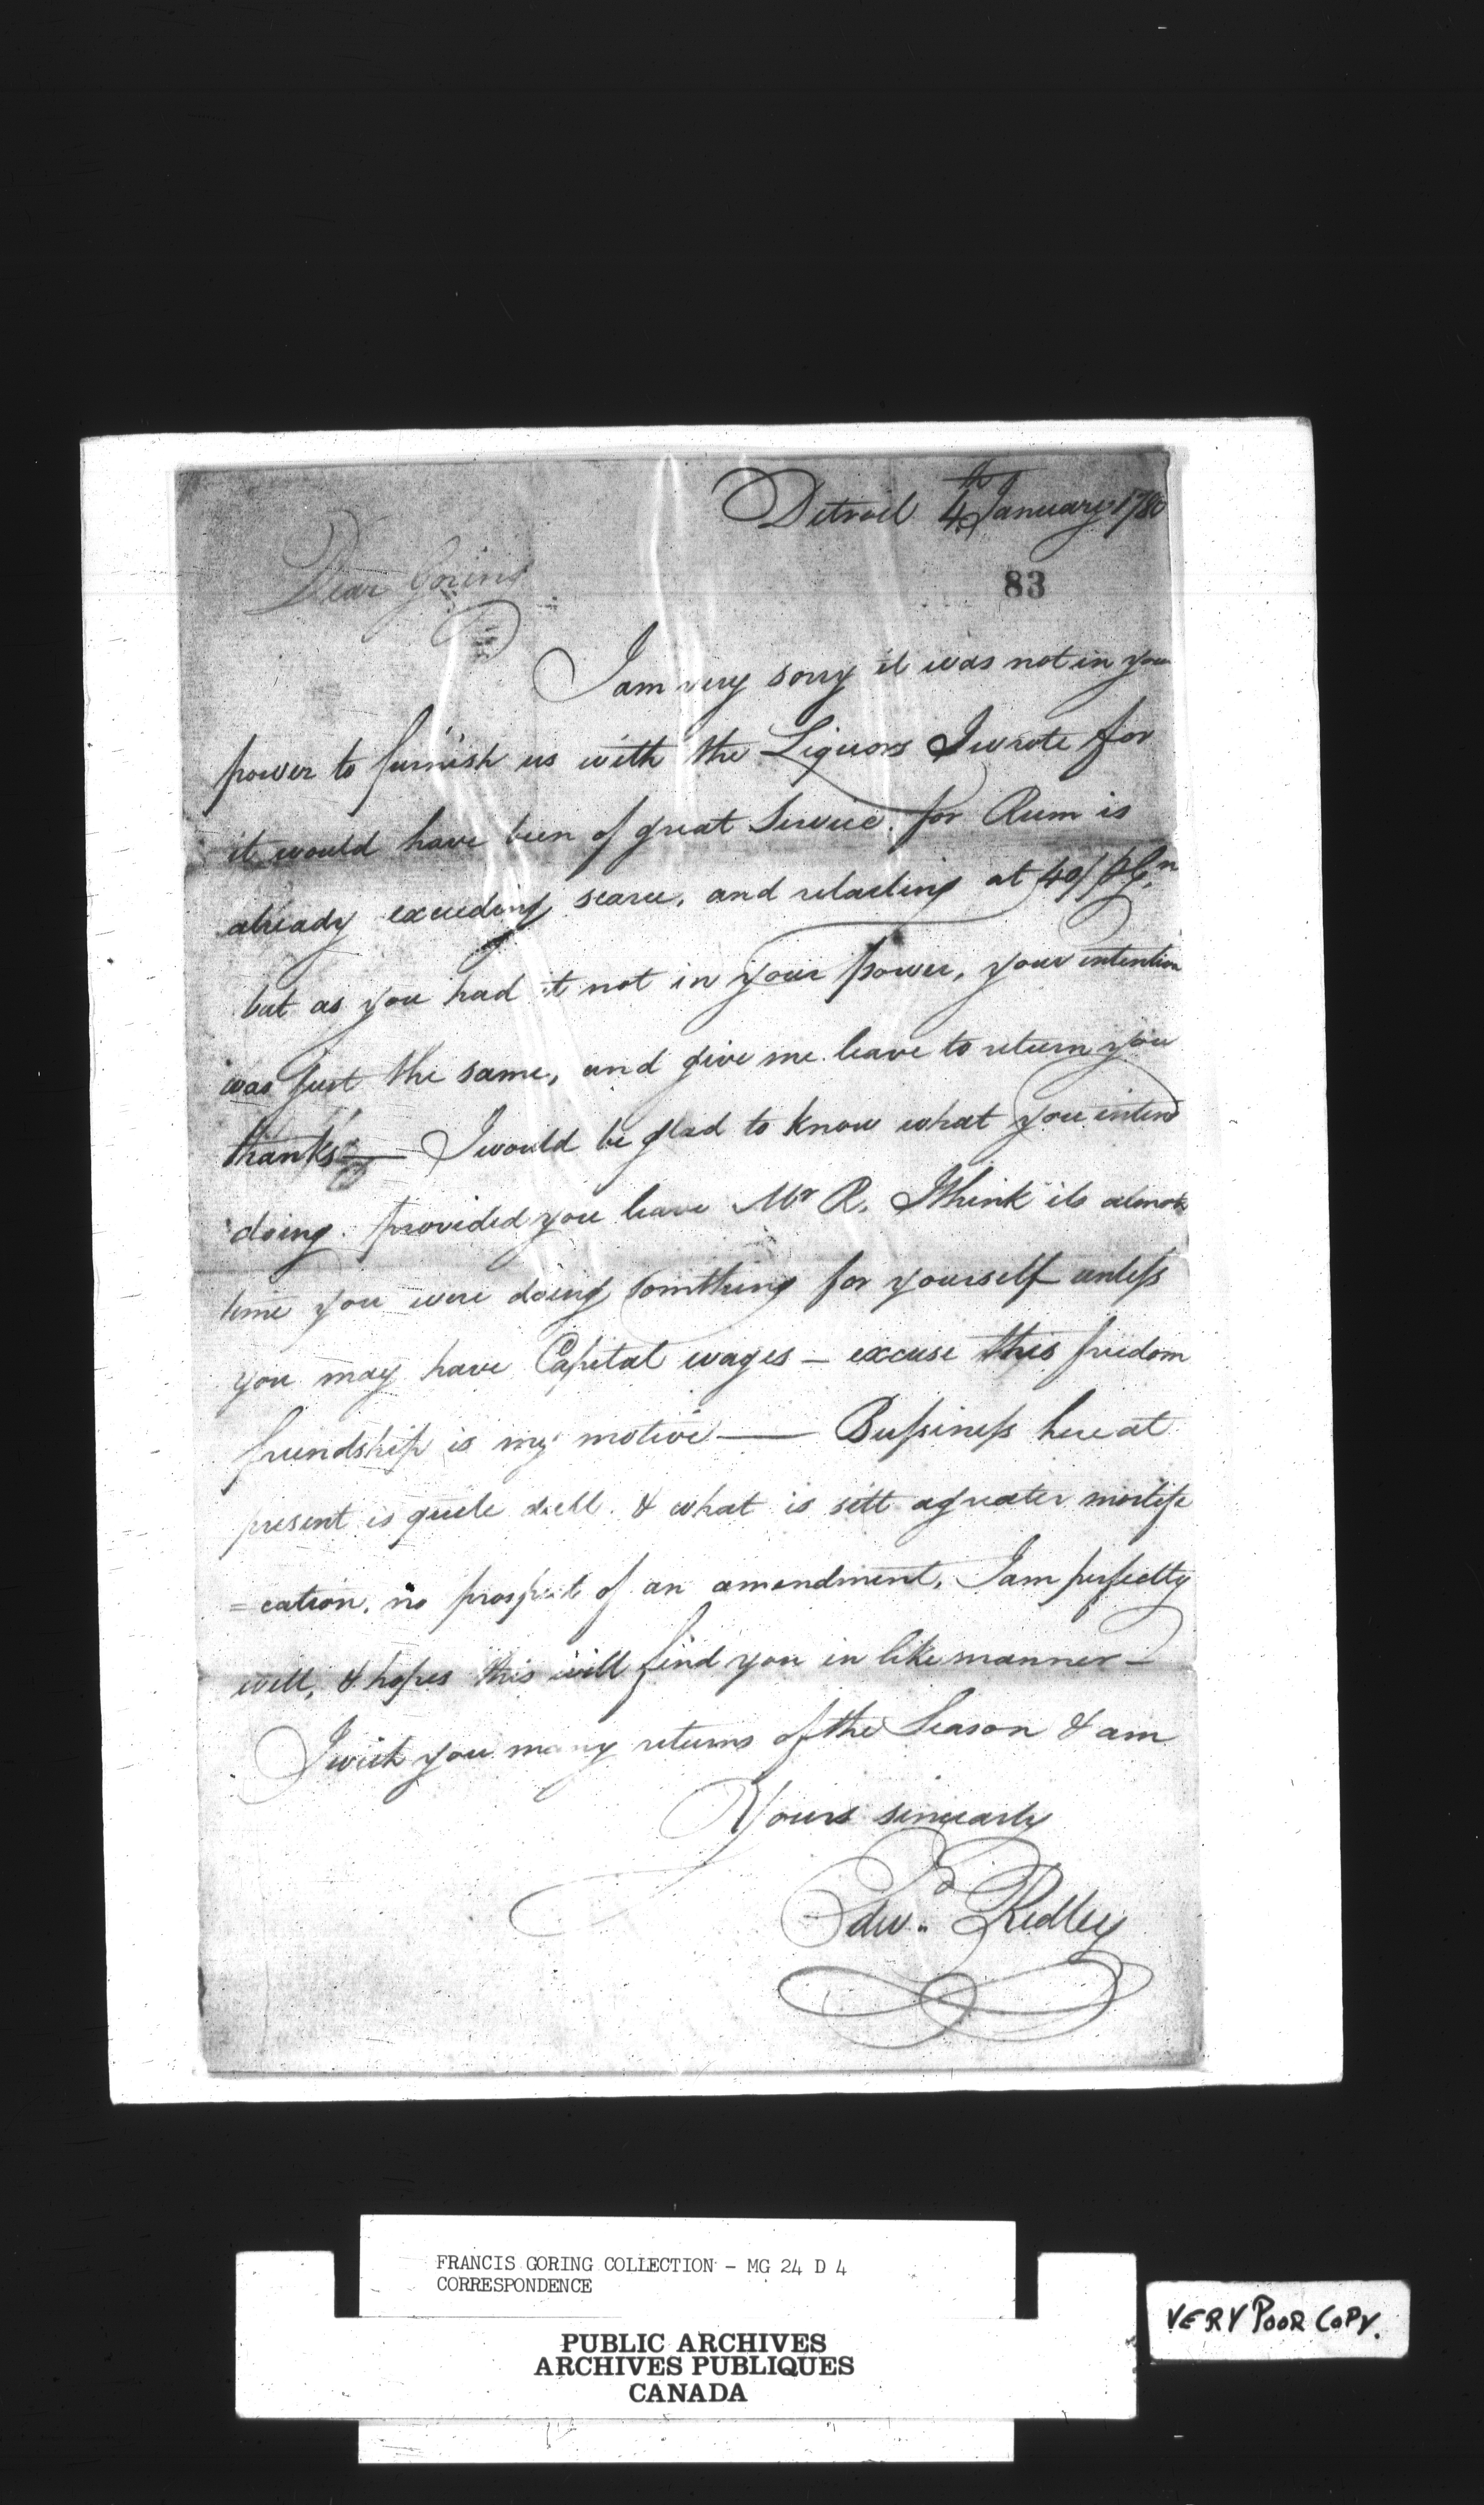 Detroit 4th January 1780
83
Dear Goring
I am very sorry it was not in your
power to furnish us with the Liquors I wrote for
it would have been of great Service. for Rum is
already exceeding scarce, and retailing at 40/ P Gn
but as you had it not in your power, your intention
was just the same, and give me leave to return you
thanks — I would be glad to know what you intend
doing. provided you leave Mr R. I think its almost
time you were doing somthing for yourself unless
you may have Capital wages — excuse this freedom
friendship is my motive — Bussiness here at
present is quite dull. & what is still a greater mortifi
=cation, no prospect of an amendment. I am perfectly
well, & hopes this will find you in like manner —
I wish you many returns of the Season & am
Yours sincearly
Edwd Ridley
FRANCIS GORING COLLECTION - MG 24 D 4
CORRESPONDENCE
PUBLIC ARCHIVES
ARCHIVES PUBLIQUES
CANADA
VERY POOR COPY.